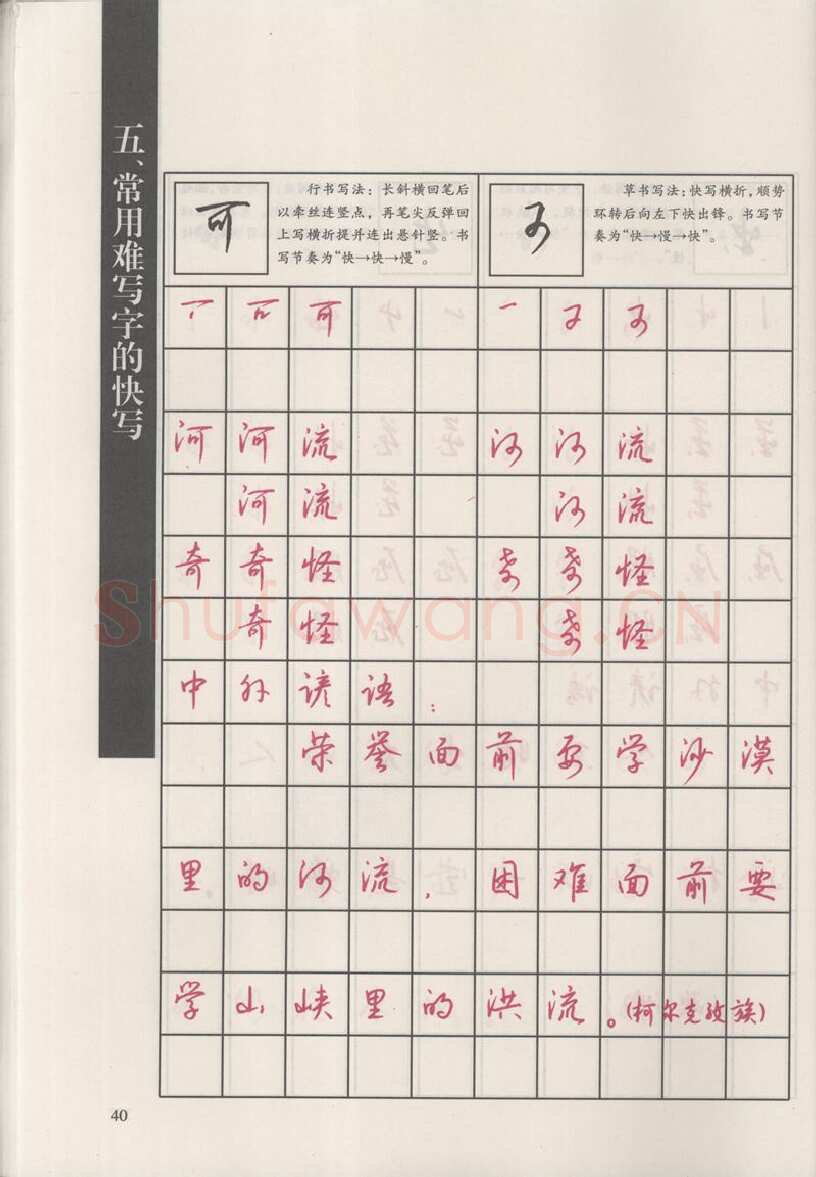 五、常用难写字的快写
可
行书写法：长斜横回笔后
以牵丝连竖点，再笔尖反弹回
上写横折提并连出悬针竖。书
写节奏为“快→快→慢”。
可
草书写法：快写横折，顺势
环转后向左下快出锋。书写节
奏为“快→慢→快”。
可 可
河 河 流 河 河 流
河 流 河 流
奇 奇 怪 奇 奇 怪
奇 怪 奇 怪
中 外 谚 语 ：
荣 誉 面 前 要 学 沙 漠
里 的 河 流 ， 困 难 面 前 要
学 山 峡 里 的 洪 流 。（柯尔克孜族）
40
Shufawang.CN